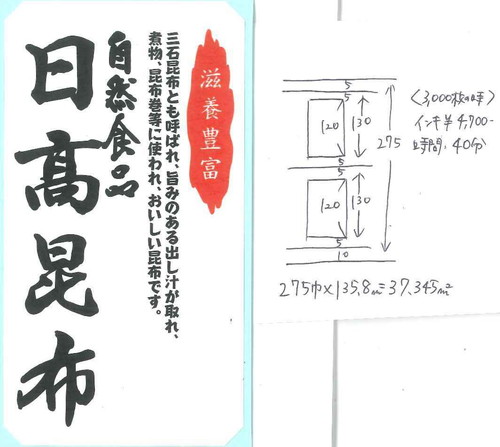 滋養豊富
三石昆布とも呼ばれ、旨みのある出し汁が取れ、
煮物、昆布巻等に使われ、おいしい昆布です。
自然食品
日高昆布
5
5
120
130
5
5
120
130
5
10
275
〈3,000枚の時〉
インキ¥4,700-
時間、40分
275巾×135.8m=37.345m²